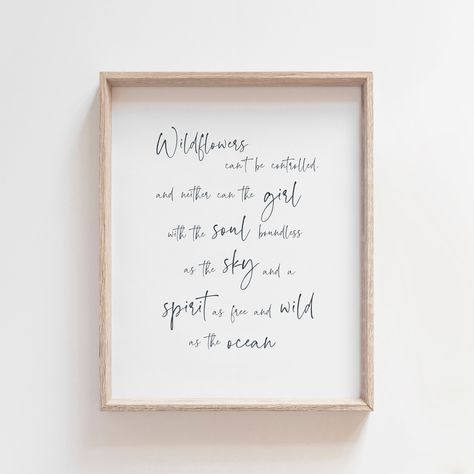 Wildflowers
can't be controlled.
and neither can the girl
with the soul boundless
as the sky and a
spirit as free and wild
as the ocean